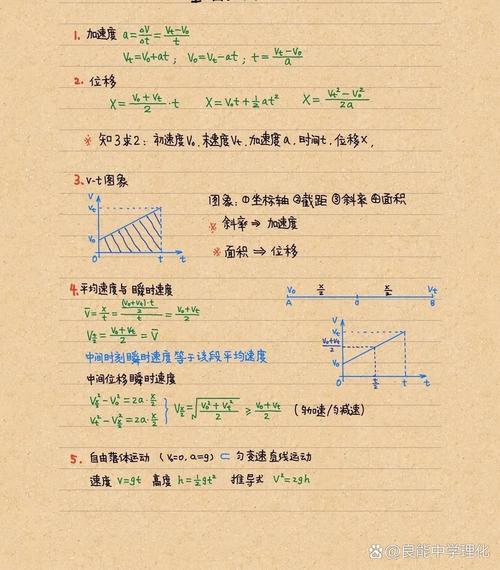 1. 加速度 a=ΔV/Δt=(Vt-V₀)/t
Vt=V₀+at; V₀=Vt-at; t=(Vt-V₀)/a
2. 位移
X=(V₀+Vt)/2·t X=V₀t+½at² X=(Vt²-V₀²)/2a
※ 知3求2: 初速度V₀、末速度Vt、加速度a,时间t,位移X,
3. v-t图象
V
Vt
V₀
0 t t
图象: ①坐标轴 ②截距 ③斜率 ④面积
※ 斜率 ⇒ 加速度
※ 面积 ⇒ 位移
4. 平均速度与瞬时速度
V̄=x/t=((V₀+Vt)·t/2)/t=(V₀+Vt)/2
V_{t/2}=(V₀+Vt)/2=V̄
中间时刻瞬时速度等于该段平均速度
V₀ x/2 x/2 Vt
A 0 B
V
Vt
(V₀+Vt)/2
V₀
0 t/2 t t
中间位移瞬时速度
V²_{x/2}-V₀²=2a·x/2
Vt²-V²_{x/2}=2a·x/2
V_{x/2}=√((V₀²+Vt²)/2) ≥ (V₀+Vt)/2 (匀加速/匀减速)
5. 自由落体运动 (V₀=0, a=g) ⊂ 匀变速直线运动
速度 V=gt 高度 h=½gt² 推导式 V²=2gh
@良能中学理化